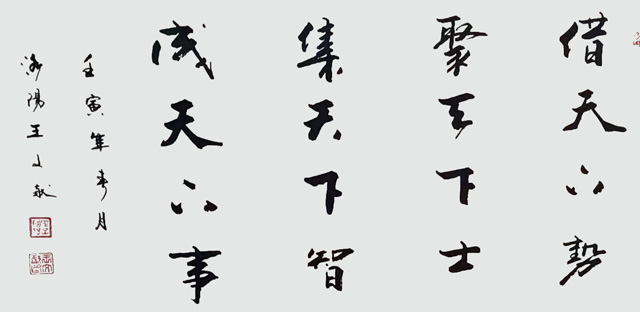 借天下势
聚天下士
集天下智
成天下事
壬寅年春月
洛阳王文献